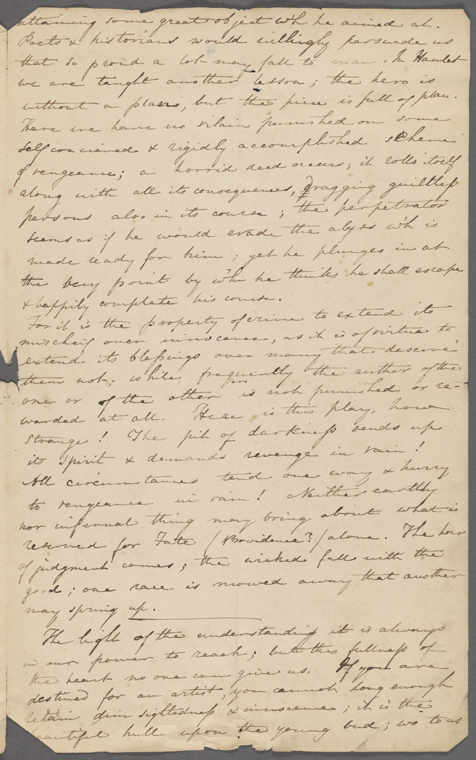 attaining some great object wh he aimed at.
Poets & historians would willingly persuade us
that so proud a lot may fall to man. In Hamlet
we are taught another lesson; the hero is
without a plan, but the piece is full of plan.
Here we have no vilain punished on some
self conceived & rigidly accomplished scheme
of vengeance; a horrid deed occurs; it rolls itself
along with all its consequences, dragging guiltless
persons also in its course; the perpetrator
seems as if he would evade the abyss wh is
made ready for him; yet he plunges in at
the very point by wh he thinks he shall escape
& happily complete his course.
For it is the property of crime to extend its
mischeif over innocence, as it is of virtue to
extend its blessings over many that deserve
them not; while frequently the author of the
one or of the other is not punished or re-
warded at all. Here in this play, how
strange! The pit of darkness sends up
its spirit & demands revenge in vain!
All circumstances tend one way & hurry
to vengeance in vain! Neither earthly
nor infernal thing may bring about what is
reserved for Fate (Providence?) alone. The hour
of judgment comes; the wicked falls with the
good; one race is mowed away that another
may spring up.
The light of the understanding it is always
in our power to reach; but the fullness of
the heart no one can give us. If you are
destined for an artist, you cannot long enough
retain dim sightedness & innocence; it is the
beautiful hull upon the young bud; wo to us